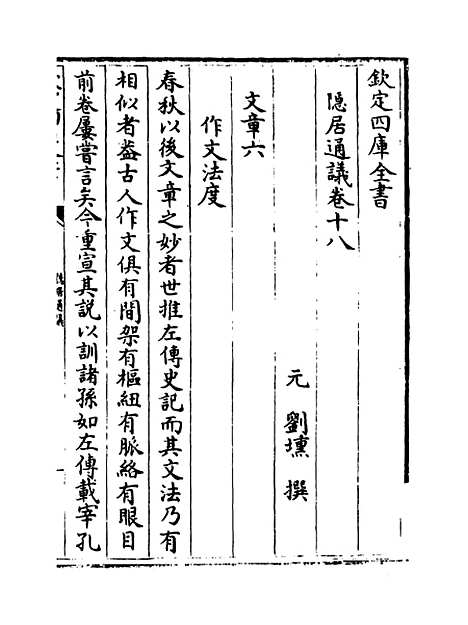 欽定四庫全書
隱居通議卷十八
元 劉壎 撰
文章六
作文法度
春秋以後文章之妙者世推左傳史記而其文法乃有
相似者葢古人作文俱有間架有樞紐有脈絡有眼目
前卷屢嘗言矣今重宣其説以訓諸孫如左傳載宰孔